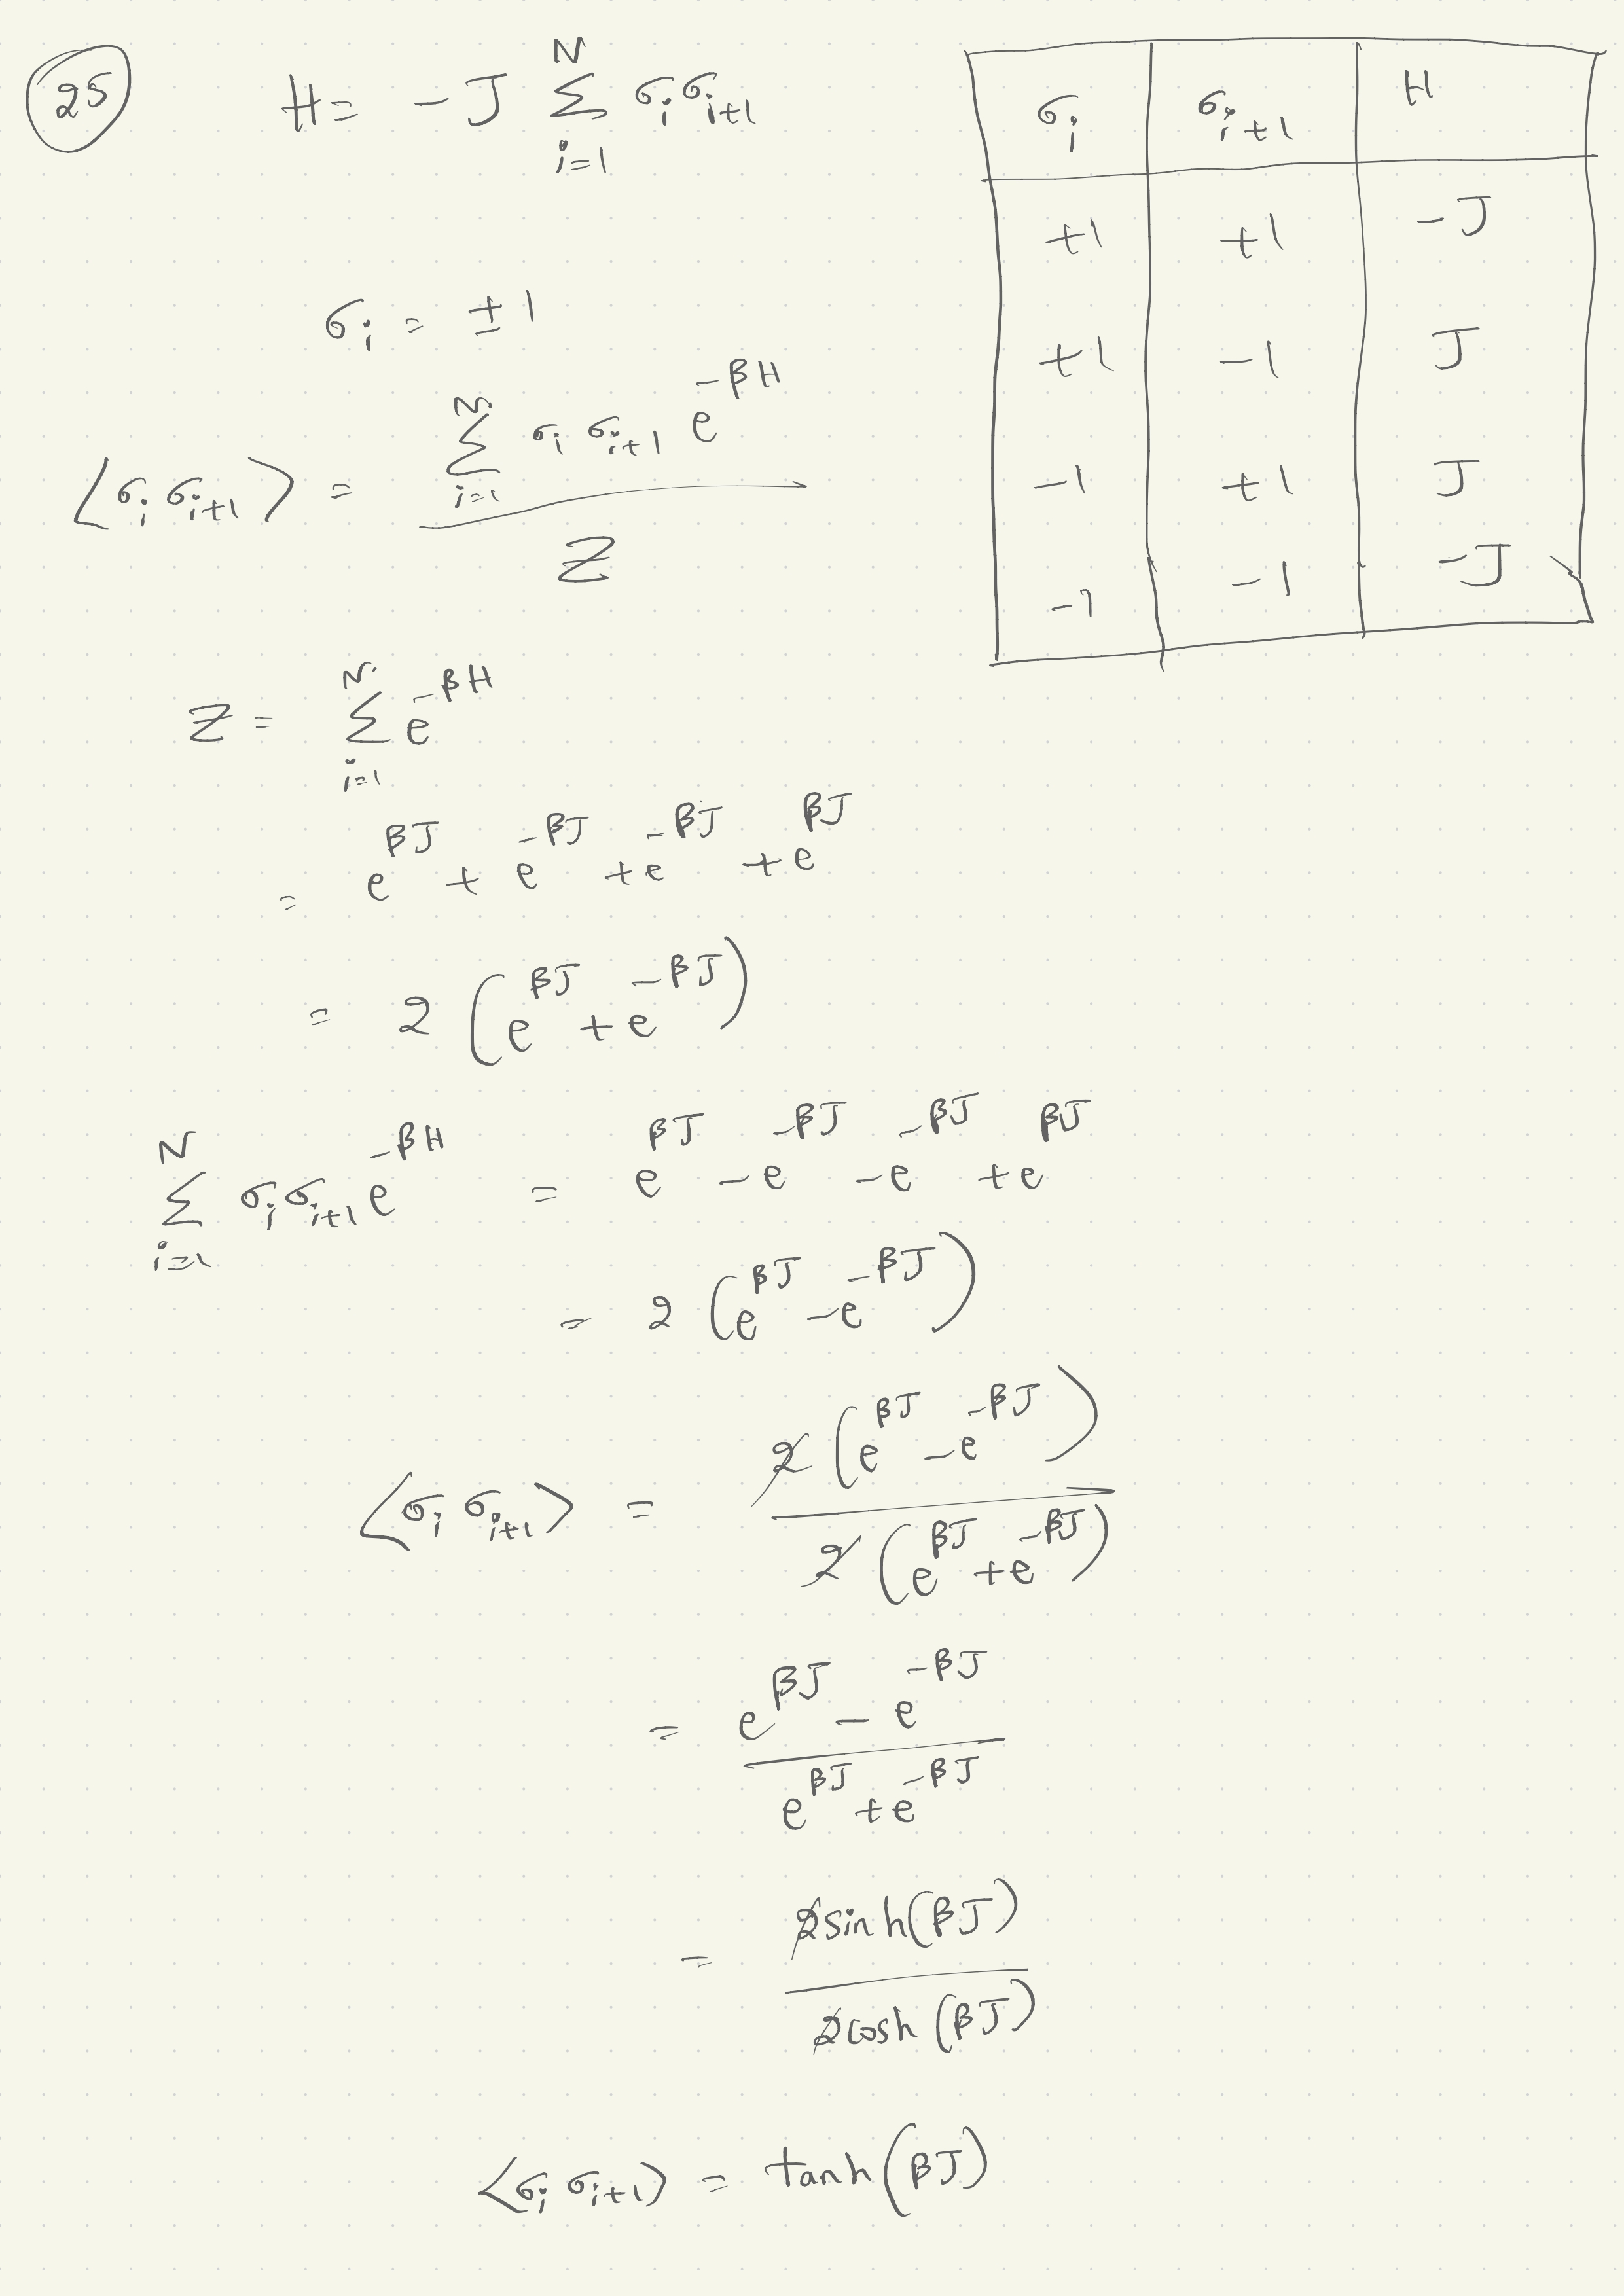 25
H = - J ∑_{i=1}^{N} σ_i σ_{i+1}
σ_i | σ_{i+1} | H
+1 | +1 | -J
+1 | -1 | J
-1 | +1 | J
-1 | -1 | -J
σ_i = ± 1
⟨σ_i σ_{i+1}⟩ = (∑_{i=1}^{N} σ_i σ_{i+1} e^{-βH}) / Z
Z = ∑_{i=1}^{N} e^{-βH}
= e^{βJ} + e^{-βJ} + e^{-βJ} + e^{βJ}
= 2 (e^{βJ} + e^{-βJ})
∑_{i=1}^{N} σ_i σ_{i+1} e^{-βH} = e^{βJ} - e^{-βJ} - e^{-βJ} + e^{βJ}
= 2 (e^{βJ} - e^{-βJ})
⟨σ_i σ_{i+1}⟩ = 2 (e^{βJ} - e^{-βJ}) / 2 (e^{βJ} + e^{-βJ})
= (e^{βJ} - e^{-βJ}) / (e^{βJ} + e^{-βJ})
= 2 sinh(βJ) / 2 cosh(βJ)
⟨σ_i σ_{i+1}⟩ = tanh(βJ)